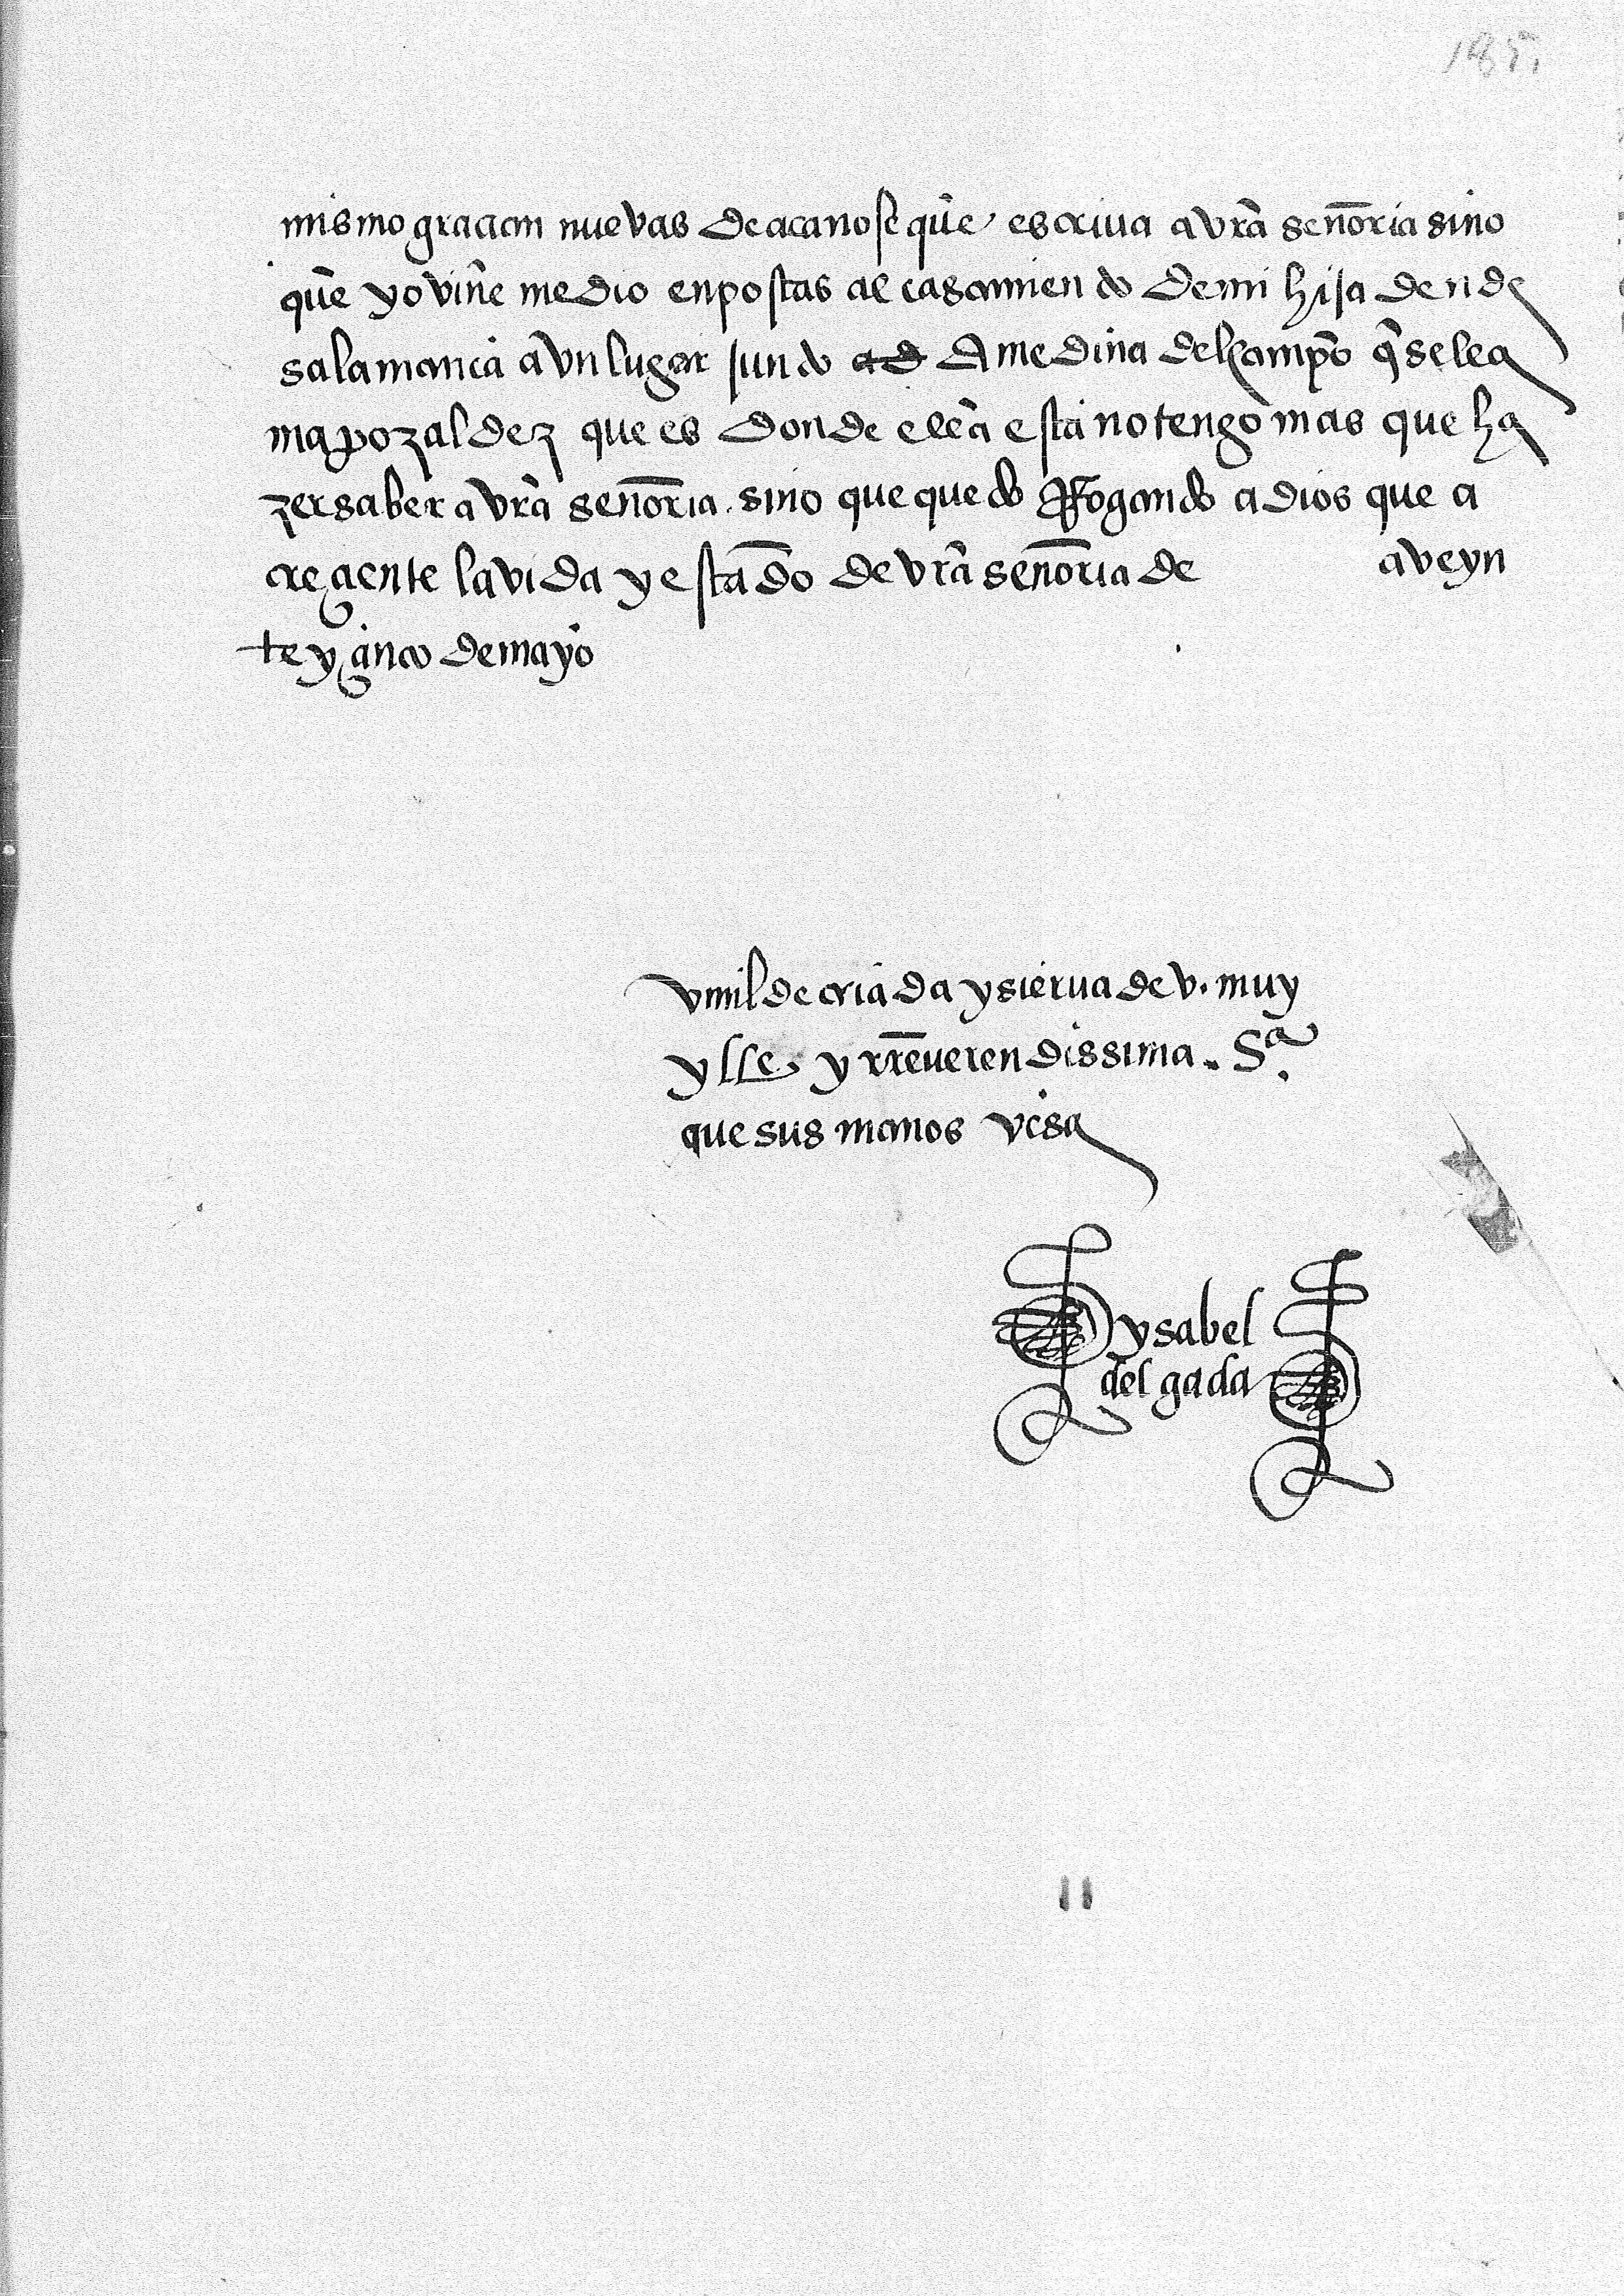 185.
mismo graçian nuevas de aca no se que escriua a vrã señoria sino
que yo vine medio en postas al casamiento de mi hija dende
salamanca a vn lugar junto a medina del campo q̃ se lla
ma pozaldez que es donde ella esta no tengo mas que ha
zer saber a vrã señoria sino que quedo Rogando a dios que a
creçiente la vida y estado de vrã señoria de a veyn
te y çinco de mayo
vmilde criada y sierua de v. muy
ylle y rreuerendissima. Sª.
que sus manos vesa
ysabel
delgada